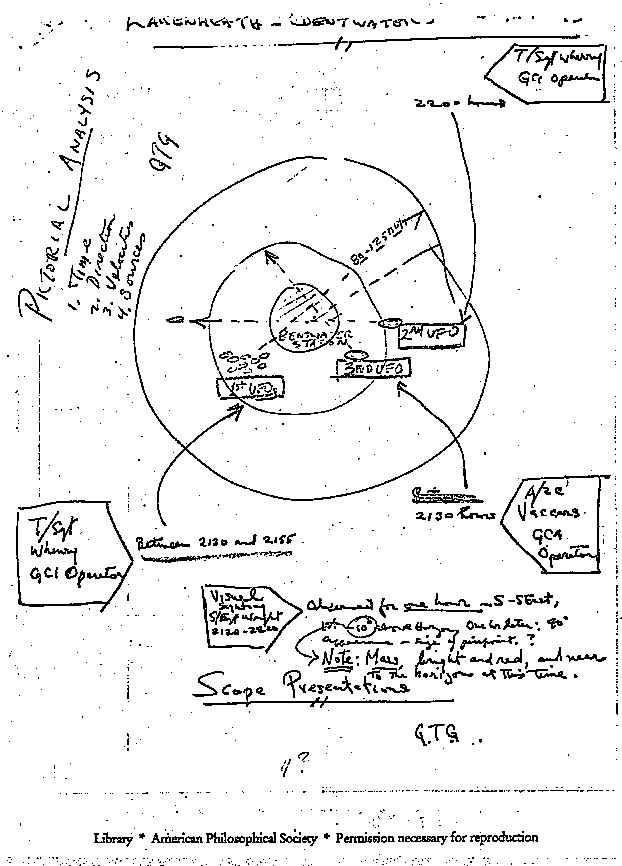 LAKENHEATH - BENTWATERS
T/Sgt Whenry
GCI Operator
2200 hours
PICTORIAL ANALYSIS
1. Time
2. Direction
3. Velocities
4. Sources
GTG
BENTWATER
STATION
2ND UFO
3RD UFO
1ST UFOs
2130 hours
A/2C
Vaccare
GCA
Operator
T/Sgt
Whenry
GCI Operator
Between 2130 and 2155
Visual
Sighting
S/Sgt Wright
2120-2220
Observed for one hour - S-SEast,
1st - 10° above Horizon. One hr. later: 40°
appearance - size of pinpoint. ?
Note: Mars, bright and red, and near
to the horizon at this time.
Scope Presentations
GTG
4?
Library * American Philosophical Society * Permission necessary for reproduction